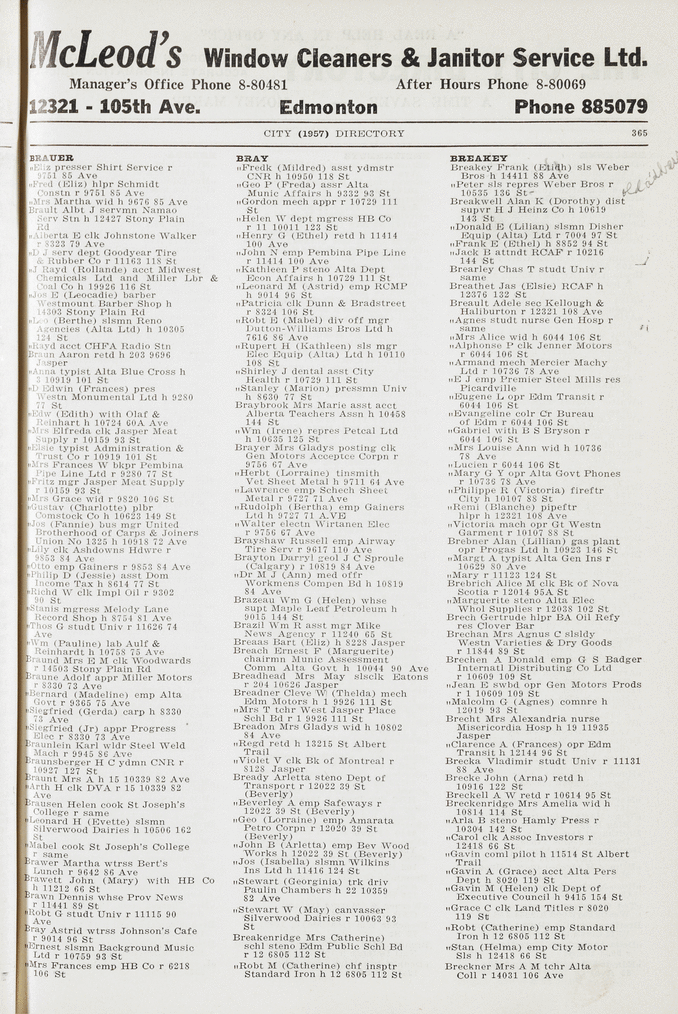 McLeod's Window Cleaners & Janitor Service Ltd.
Manager's Office Phone 8-80481 After Hours Phone 8-80069
12321 - 105th Ave. Edmonton Phone 885079
CITY (1957) DIRECTORY 365
BRAUER
„Eliz presser Shirt Service r
9751 85 Ave
„Fred (Eliz) hlpr Schmidt
Constn r 9751 85 Ave
„Mrs Martha wid h 9676 85 Ave
Brault Albt J servmn Namao
Serv Stn h 12427 Stony Plain
Rd
„Alberta E clk Johnstone Walker
r 8323 79 Ave
„D J serv dept Goodyear Tire
& Rubber Co r 11163 118 St
„J Rayd (Rollande) acct Midwest
Chemicals Ltd and Miller Lbr &
Coal Co h 19926 116 St
„Jos E (Leocadie) barber
Westmount Barber Shop h
14303 Stony Plain Rd
„Leo (Berthe) slsmn Reno
Agencies (Alta Ltd) h 10305
124 St
„Rayd acct CHFA Radio Stn
Braun Aaron retd h 203 9696
Jasper
„Anna typist Alta Blue Cross h
3 10919 101 St
„D Edwin (Frances) pres
Westn Monumental Ltd h 9280
77 St
„Edw (Edith) with Olaf &
Reinhart h 10724 60A Ave
„Mrs Elfreda clk Jasper Meat
Supply r 10159 93 St
„Elsie typist Administration &
Trust Co r 10919 101 St
„Mrs Frances W bkpr Pembina
Pipe Line Ltd r 9280 77 St
„Fritz mgr Jasper Meat Supply
r 10159 93 St
„Mrs Grace wid r 9820 106 St
„Gustav (Charlotte) plbr
Comstock Co h 10623 149 St
„Jos (Fannie) bus mgr United
Brotherhood of Carps & Joiners
Union No 1325 h 10918 72 Ave
„Lily clk Ashdowns Hdwre r
9853 84 Ave
„Otto emp Gainers r 9853 84 Ave
„Philip D (Jessie) asst Dom
Income Tax h 8614 77 St
„Richd W clk Impl Oil r 9302
90 St
„Stanis mgress Melody Lane
Record Shop h 8754 81 Ave
„Thos G studt Univ r 11626 74
Ave
„Wm (Pauline) lab Aulf &
Reinhardt h 10758 75 Ave
Braund Mrs E M clk Woodwards
r 14503 Stony Plain Rd
Braune Adolf appr Miller Motors
r 8330 73 Ave
„Bernard (Madeline) emp Alta
Govt r 9365 75 Ave
„Siegfried (Gerda) carp h 8330
73 Ave
„Siegfried (Jr) appr Progress
Elec r 8330 73 Ave
Braunlein Karl wldr Steel Weld
Mach r 9945 86 Ave
Braunsberger H C ydmn CNR r
10927 127 St
Braunt Mrs A h 15 10339 82 Ave
„Arth H clk DVA r 15 10339 82
Ave
Brausen Helen cook St Joseph's
College r same
„Leonard H (Evette) slsmn
Silverwood Dairies h 10506 162
St
„Mabel cook St Joseph's College
r same
Brawer Martha wtrss Bert's
Lunch r 9642 86 Ave
Brawett John (Mary) with HB Co
h 11212 66 St
Brawn Dennis whse Prov News
r 11441 89 St
„Robt G studt Univ r 11115 90
Ave
Bray Astrid wtrss Johnson's Cafe
r 9014 96 St
„Ernest slsmn Background Music
Ltd r 10759 93 St
„Mrs Frances emp HB Co r 6218
106 St
BRAY
„Fredk (Mildred) asst ydmstr
CNR h 10950 118 St
„Geo P (Freda) assr Alta
Munic Affairs h 9332 93 St
„Gordon mech appr r 10729 111
St
„Helen W dept mgress HB Co
r 11 10011 123 St
„Henry G (Ethel) retd h 11414
100 Ave
„John N emp Pembina Pipe Line
r 11414 100 Ave
„Kathleen P steno Alta Dept
Econ Affairs h 10729 111 St
„Leonard M (Astrid) emp RCMP
h 9014 96 St
„Patricia clk Dunn & Bradstreet
r 8324 106 St
„Robt E (Mabel) div off mgr
Dutton-Williams Bros Ltd h
7616 86 Ave
„Rupert H (Kathleen) sls mgr
Elec Equip (Alta) Ltd h 10110
108 St
„Shirley J dental asst City
Health r 10729 111 St
„Stanley (Marion) pressmn Univ
h 8630 77 St
Braybrook Mrs Marie asst acct
Alberta Teachers Assn h 10458
144 St
„Wm (Irene) repres Petcal Ltd
h 10635 125 St
Brayer Mrs Gladys posting clk
Gen Motors Acceptce Corpn r
9756 67 Ave
„Herbt (Lorraine) tinsmith
Vet Sheet Metal h 9711 64 Ave
„Lawrence emp Schech Sheet
Metal r 9727 71 Ave
„Rudolph (Bertha) emp Gainers
Ltd h 9727 71 A.VE
„Walter electn Wirtanen Elec
r 9756 67 Ave
Brayshaw Russell emp Airway
Tire Serv r 9617 110 Ave
Brayton Darryl geol J C Sproule
(Calgary) r 10819 84 Ave
„Dr M J (Ann) med offr
Workmens Compen Bd h 10819
84 Ave
Brazeau Wm G (Helen) whse
supt Maple Leaf Petroleum h
9015 144 St
Brazil Wm R asst mgr Mike
News Agency r 11240 65 St
Breaas Bart (Eliz) h 8228 Jasper
Breach Ernest F (Marguerite)
chairmn Munic Assessment
Comm Alta Govt h 10044 90 Ave
Breadhead Mrs May slsclk Eatons
r 204 10626 Jasper
Breadner Cleve W (Thelda) mech
Edm Motors h 1 9926 111 St
„Mrs T tchr West Jasper Place
Schl Bd r 1 9926 111 St
Breadon Mrs Gladys wid h 10802
84 Ave
„Regd retd h 13215 St Albert
Trail
„Violet V clk Bk of Montreal r
8128 Jasper
Bready Arletta steno Dept of
Transport r 12022 39 St
(Beverly)
„Beverley A emp Safeways r
12022 39 St (Beverly)
„Geo (Lorraine) emp Amarata
Petro Corpn r 12020 39 St
(Beverly)
„John B (Arletta) emp Bev Wood
Works h 12022 39 St (Beverly)
„Jos (Isabella) slsmn Wilkins
Ins Ltd h 11416 124 St
„Stewart (Georginia) trk driv
Paulin Chambers h 22 10359
82 Ave
„Stewart W (May) canvasser
Silverwood Dairies r 10063 93
St
Breakenridge Mrs Catherine)
schl steno Edm Public Schl Bd
r 12 6805 112 St
„Robt M (Catherine) chf insptr
Standard Iron h 12 6805 112 St
BREAKEY
Breakey Frank (Edith) sls Weber
Bros h 14411 88 Ave
„Peter sls repres Weber Bros r
10535 136 St
Breakwell Alan K (Dorothy) dist
supvr H J Heinz Co h 10619
143 St
„Donald E (Lilian) slsmn Disher
Equip (Alta) Ltd r 7004 97 St
„Frank E (Ethel) h 8852 94 St
„Jack B attndt RCAF r 10216
144 St
Brearley Chas T studt Univ r
same
Breathet Jas (Elsie) RCAF h
12376 132 St
Breault Adele sec Kellough &
Haliburton r 12321 108 Ave
„Agnes studt nurse Gen Hosp r
same
„Mrs Alice wid h 6044 106 St
„Alphonse P clk Jenner Motors
r 6044 106 St
„Armand mech Mercier Machy
Ltd r 10736 78 Ave
„E J emp Premier Steel Mills res
Picardville
„Eugene L opr Edm Transit r
6044 106 St
„Evangeline colr Cr Bureau
of Edm r 6044 106 St
„Gabriel with B S Bryson r
6044 106 St
„Mrs Louise Ann wid h 10736
78 Ave
„Lucien r 6044 106 St
„Mary G Y opr Alta Govt Phones
r 10736 78 Ave
„Philippe R (Victoria) fireftr
City h 10107 88 St
„Remi (Blanche) pipeftr
hlpr h 12321 108 Ave
„Victoria mach opr Gt Westn
Garment r 10107 88 St
Brebner Alan (Lillian) gas plant
opr Progas Ltd h 10923 146 St
„Margt A typist Alta Gen Ins r
10629 80 Ave
„Mary r 11123 124 St
Brebrich Alice M clk Bk of Nova
Scotia r 12014 95A St
„Marguerite steno Alta Elec
Whol Supplies r 12038 102 St
Brech Gertrude hlpr BA Oil Refy
res Clover Bar
Brechan Mrs Agnus C slsldy
Westn Varieties & Dry Goods
r 11844 89 St
Brechen A Donald emp G S Badger
Internatl Distributing Co Ltd
r 10609 109 St
„Jean E swbd opr Gen Motors Prods
r 1 10609 109 St
„Malcolm G (Agnes) comnre h
12019 93 St
Brecht Mrs Alexandria nurse
Misericordia Hosp h 19 11935
Jasper
„Clarence A (Frances) opr Edm
Transit h 12144 96 St
Brecka Vladimir studt Univ r 11131
88 Ave
Brecke John (Arna) retd h
10916 122 St
Breckell A W retd r 10614 95 St
Breckenridge Mrs Amelia wid h
10814 114 St
„Arla B steno Hamly Press r
10304 142 St
„Carol clk Assoc Investors r
12418 66 St
„Gavin coml pilot h 11514 St Albert
Trail
„Gavin A (Grace) acct Alta Pers
Dept h 8020 119 St
„Gavin M (Helen) clk Dept of
Executive Council h 9415 154 St
„Grace C clk Land Titles r 8020
119 St
„Robt (Catherine) emp Standard
Iron h 12 6805 112 St
„Stan (Helma) emp City Motor
Sls h 12418 66 St
Breckner Mrs A M tchr Alta
Coll r 14031 106 Ave